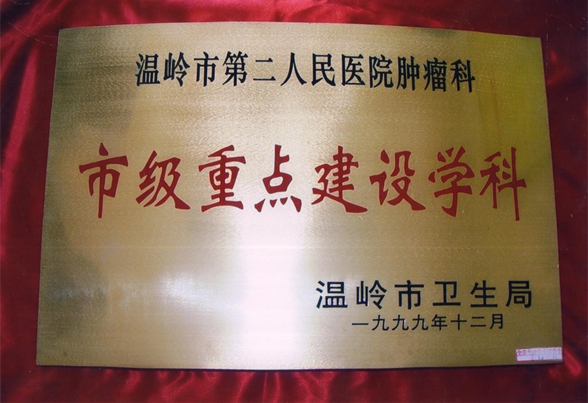 温岭市第二人民医院肿瘤科
市级重点建设学科
温岭市卫生局
一九九九年十二月